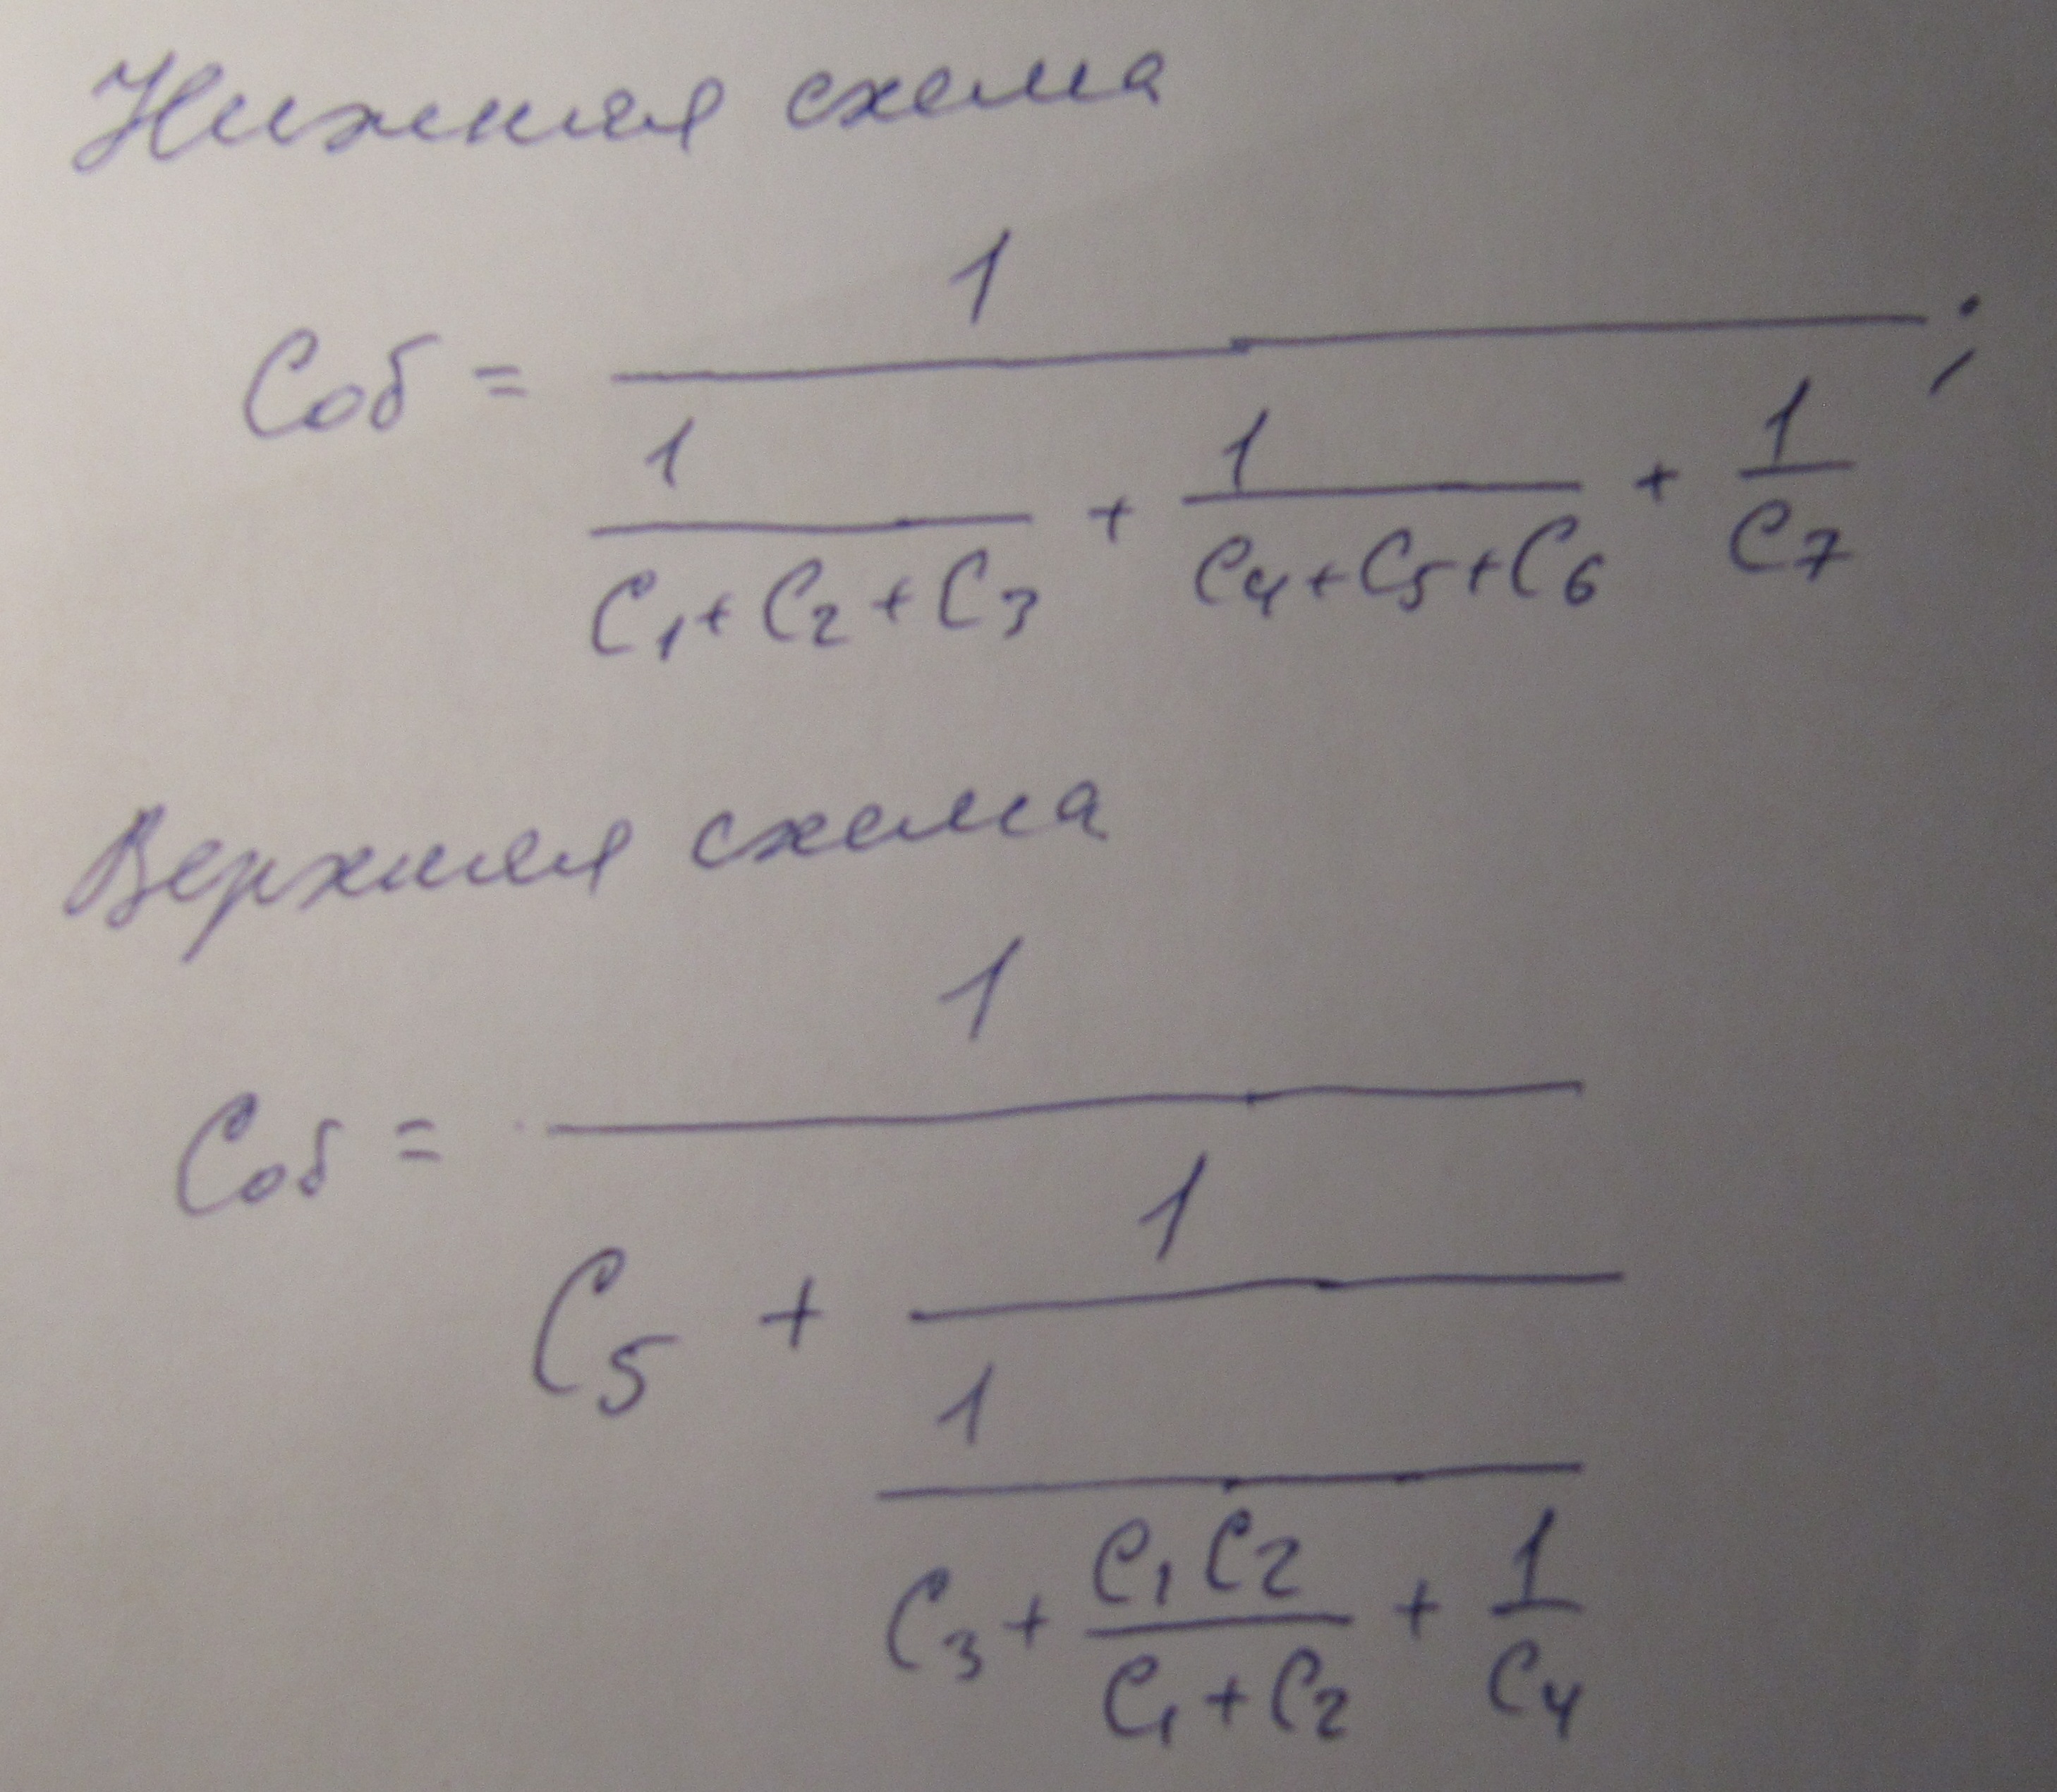 Нижняя схема
Cоб = 1 / (1/(C1+C2+C3) + 1/(C4+C5+C6) + 1/C7);
Верхняя схема
Cоб = 1 / (C5 + 1 / (1 / (C3 + C1C2/(C1+C2) + 1/C4)))